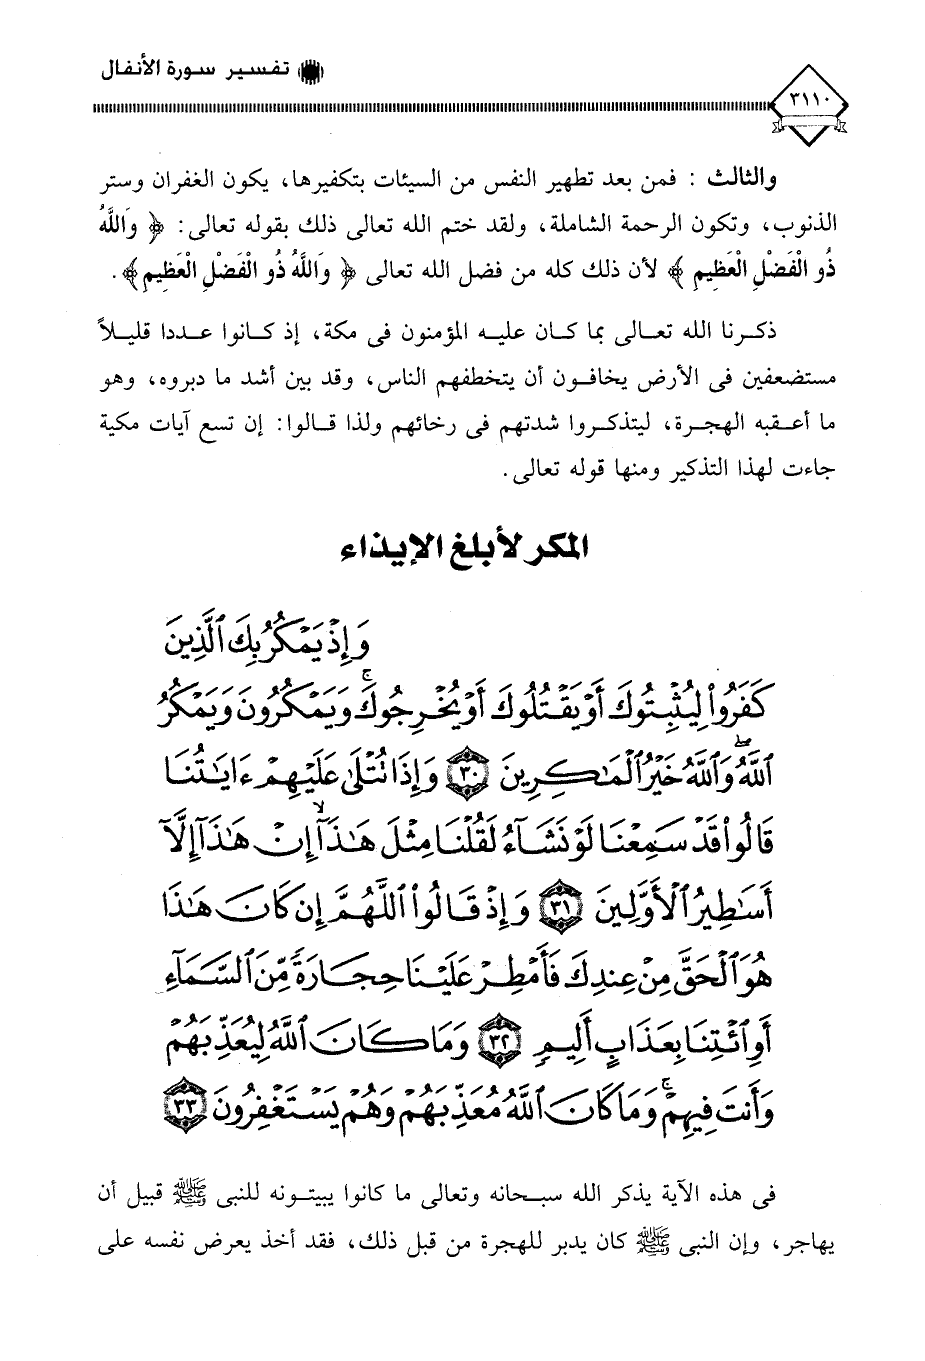 تفسير سورة الأنفال
٣١١٠
والثالث : فمن بعد تطهير النفس من السيئات بتكفيرها، يكون الغفران وستر
الذنوب، وتكون الرحمة الشاملة، ولقد ختم الله تعالى ذلك بقوله تعالى: ﴿ وَاللَّهُ
ذُو الْفَضْلِ الْعَظِيمِ ﴾ لأن ذلك كله من فضل الله تعالى ﴿ وَاللَّهُ ذُو الْفَضْلِ الْعَظِيمِ﴾ .
ذكرنا الله تعالى بما كان عليه المؤمنون فى مكة، إذ كانوا عددا قليلاً
مستضعفين فى الأرض يخافون أن يتخطفهم الناس، وقد بين أشد ما دبروه، وهو
ما أعقبه الهجرة، ليتذكروا شدتهم فى رخائهم ولذا قالوا: إن تسع آيات مكية
جاءت لهذا التذكير ومنها قوله تعالى.
المكر لأبلغ الإيذاء
وَإِذْ يَمْكُرُ بِكَ ٱلَّذِينَ
كَفَرُواْ لِيُثْبِتُوكَ أَوْ يَقْتُلُوكَ أَوْ يُخْرِجُوكَ ۚ وَيَمْكُرُونَ وَيَمْكُرُ
ٱللَّهُ ۖ وَٱللَّهُ خَيْرُ ٱلْمَٰكِرِينَ ٣٠ وَإِذَا تُتْلَىٰ عَلَيْهِمْ ءَايَٰتُنَا
قَالُواْ قَدْ سَمِعْنَا لَوْ نَشَآءُ لَقُلْنَا مِثْلَ هَٰذَآ ۙ إِنْ هَٰذَآ إِلَّآ
أَسَٰطِيرُ ٱلْأَوَّلِينَ ٣١ وَإِذْ قَالُواْ ٱللَّهُمَّ إِن كَانَ هَٰذَا
هُوَ ٱلْحَقَّ مِنْ عِندِكَ فَأَمْطِرْ عَلَيْنَا حِجَارَةً مِّنَ ٱلسَّمَآءِ
أَوِ ٱئْتِنَا بِعَذَابٍ أَلِيمٍ ٣٢ وَمَا كَانَ ٱللَّهُ لِيُعَذِّبَهُمْ
وَأَنتَ فِيهِمْ ۚ وَمَا كَانَ ٱللَّهُ مُعَذِّبَهُمْ وَهُمْ يَسْتَغْفِرُونَ ٣٣
فى هذه الآية يذكر الله سبحانه وتعالى ما كانوا يبيتونه للنبى ﷺ قبيل أن
يهاجر، وإن النبى ﷺ كان يدبر للهجرة من قبل ذلك، فقد أخذ يعرض نفسه على